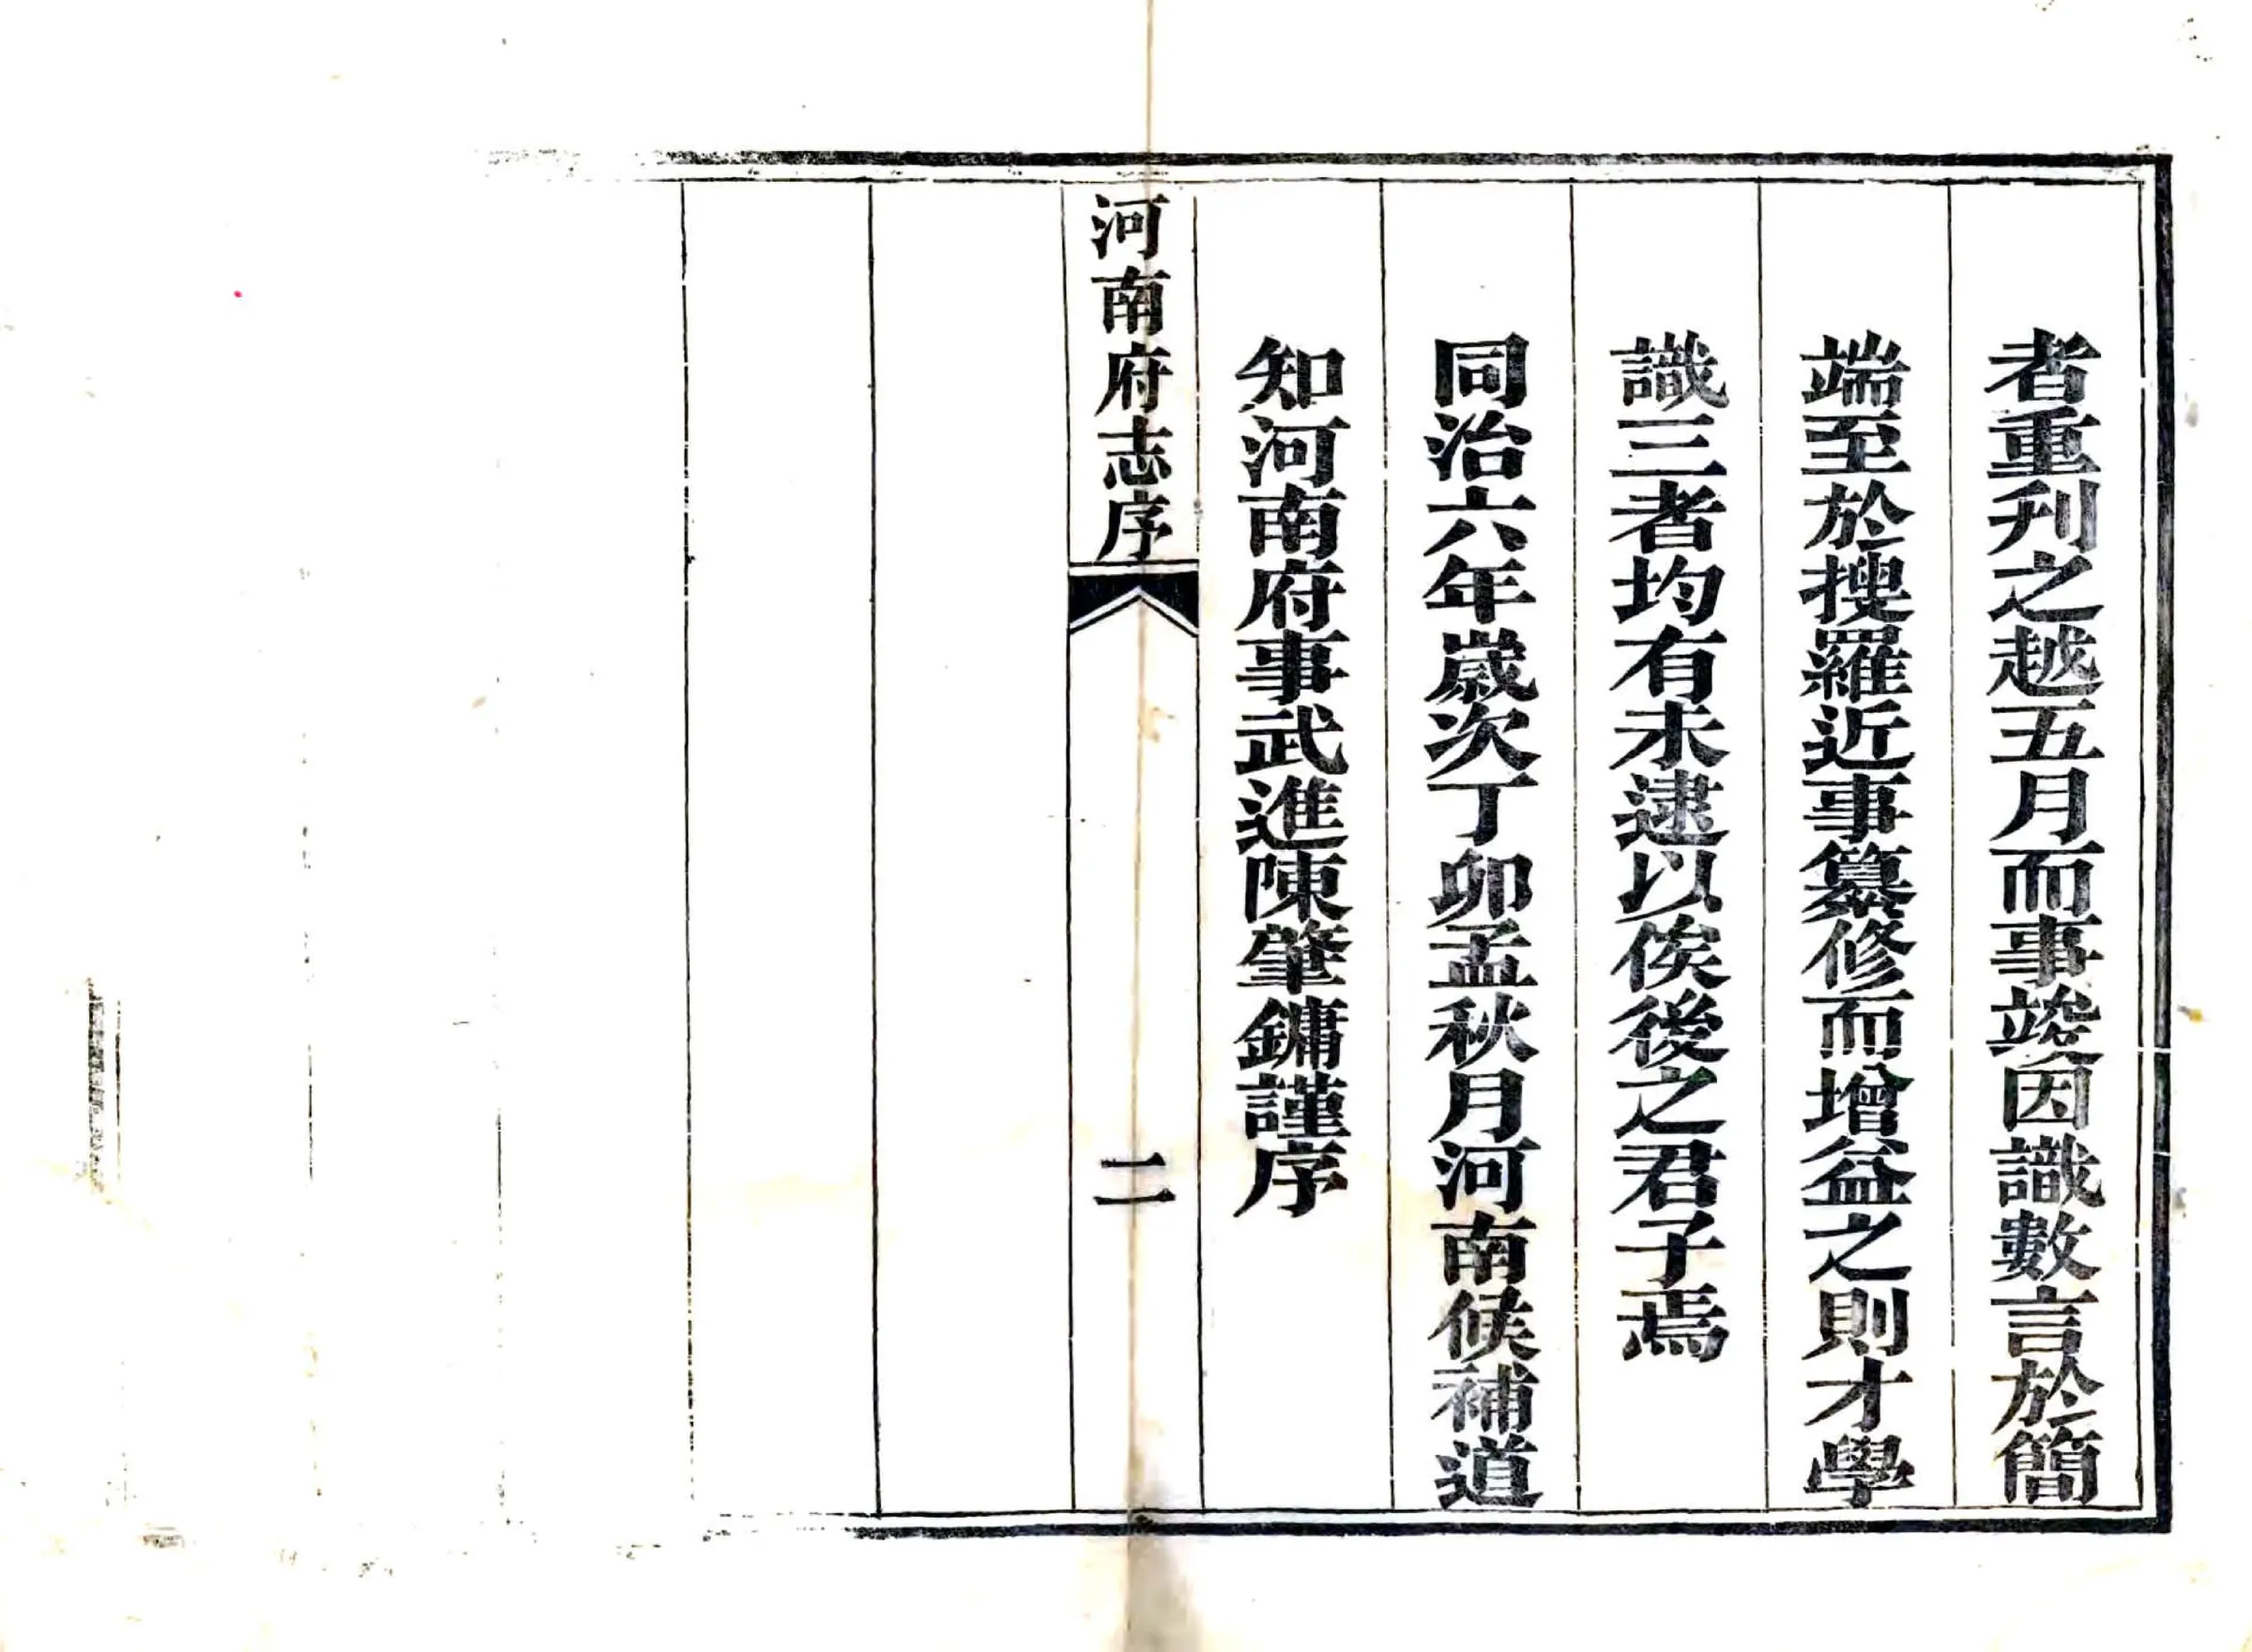 者重刋之越五月而事竣因識數言於簡
端至於搜羅近事纂修而增益之則才學
識三者均有未逮以俟後之君子焉
同治六年歲次丁卯孟秋月河南候補道
知河南府事武進陳肇鏞謹序
河南府志序
二